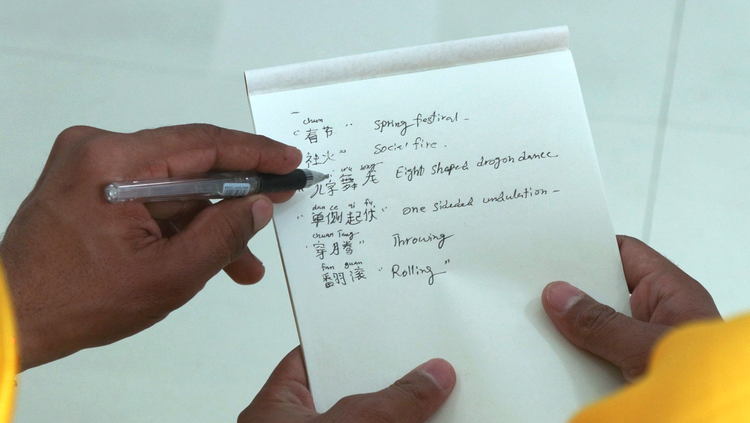 chun
"春节" Spring festival -
社火" Social fire.
wu long
八字舞龙 Eight Shaped dragon dance
dan ce qi fu
"单侧起伏" one sided undulation -
chuan Tang
"穿腾" Throwing
fan guan
翻滚 "Rolling"